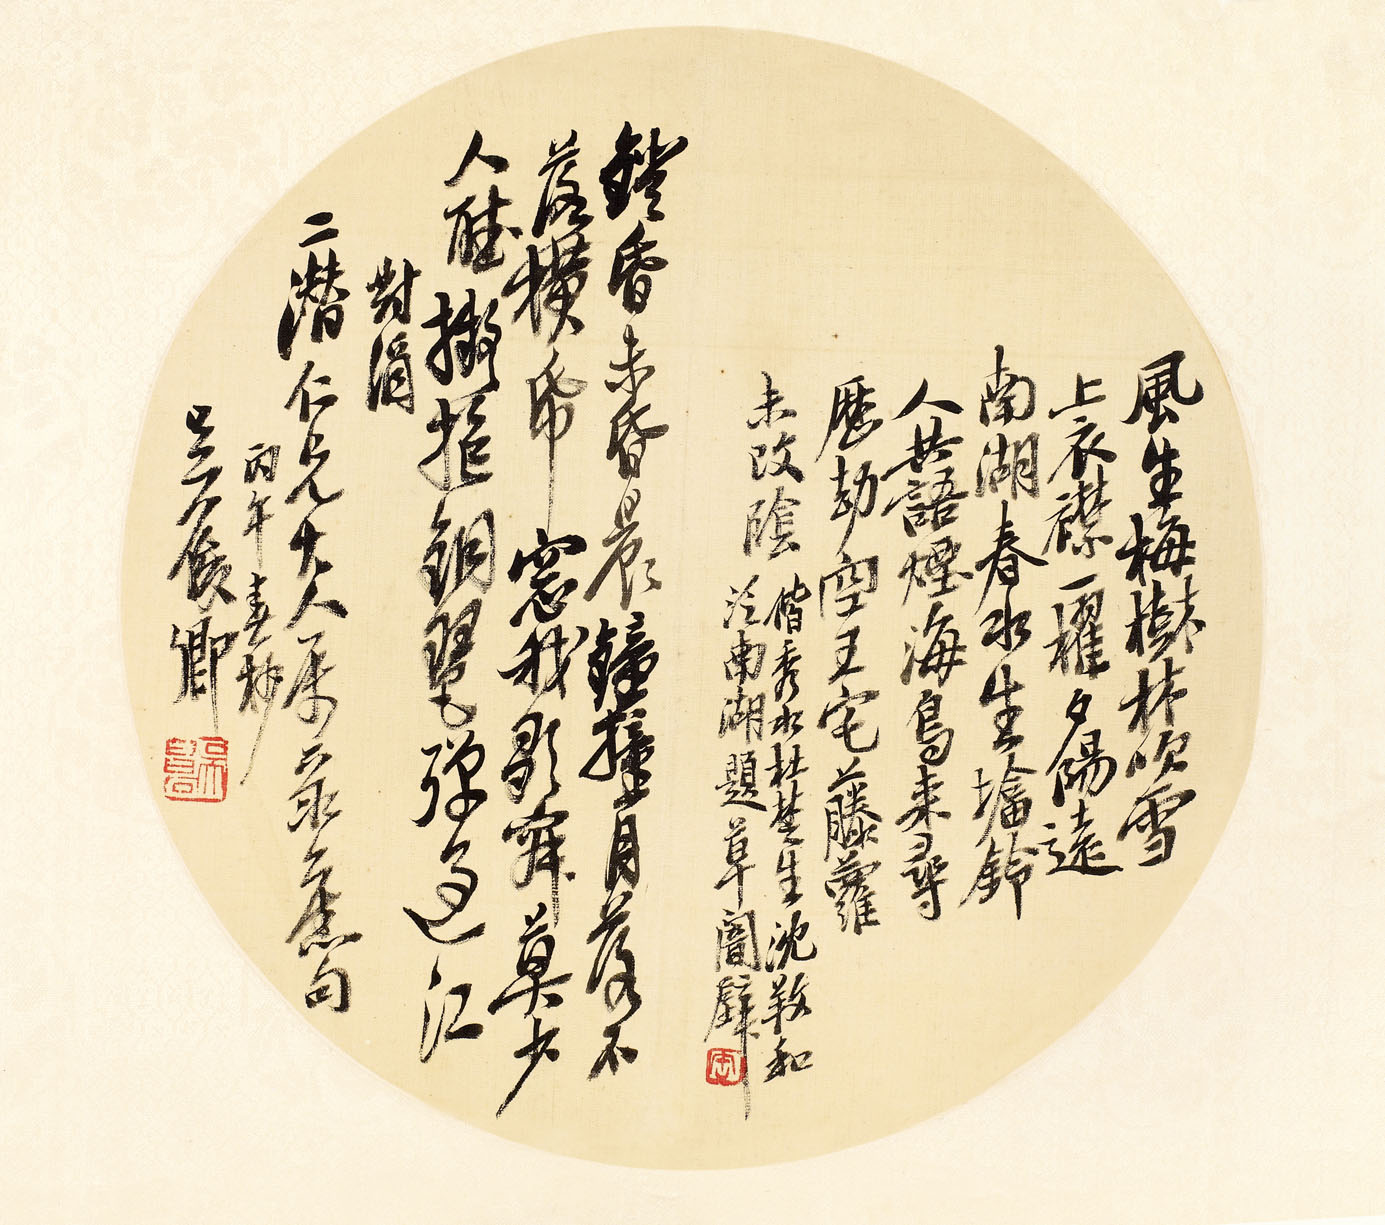 風生梅樹林吹雪
上衣襟一櫂夕陽遠
南湖春水生墖鈴
人共語煙海鳥来尋
歷劫空王宅藤蘿
未改陰 偕秀水杜楚生沈敎和
泛南湖題草闇壁
鐙昏未昏晨鐘撞月落不
落橫帋窓我歌舞莫少
人聽撥搖銅琶彈過江
對酒
二潛仁兄大人屬录舊句
丙午春杪
吳俊卿